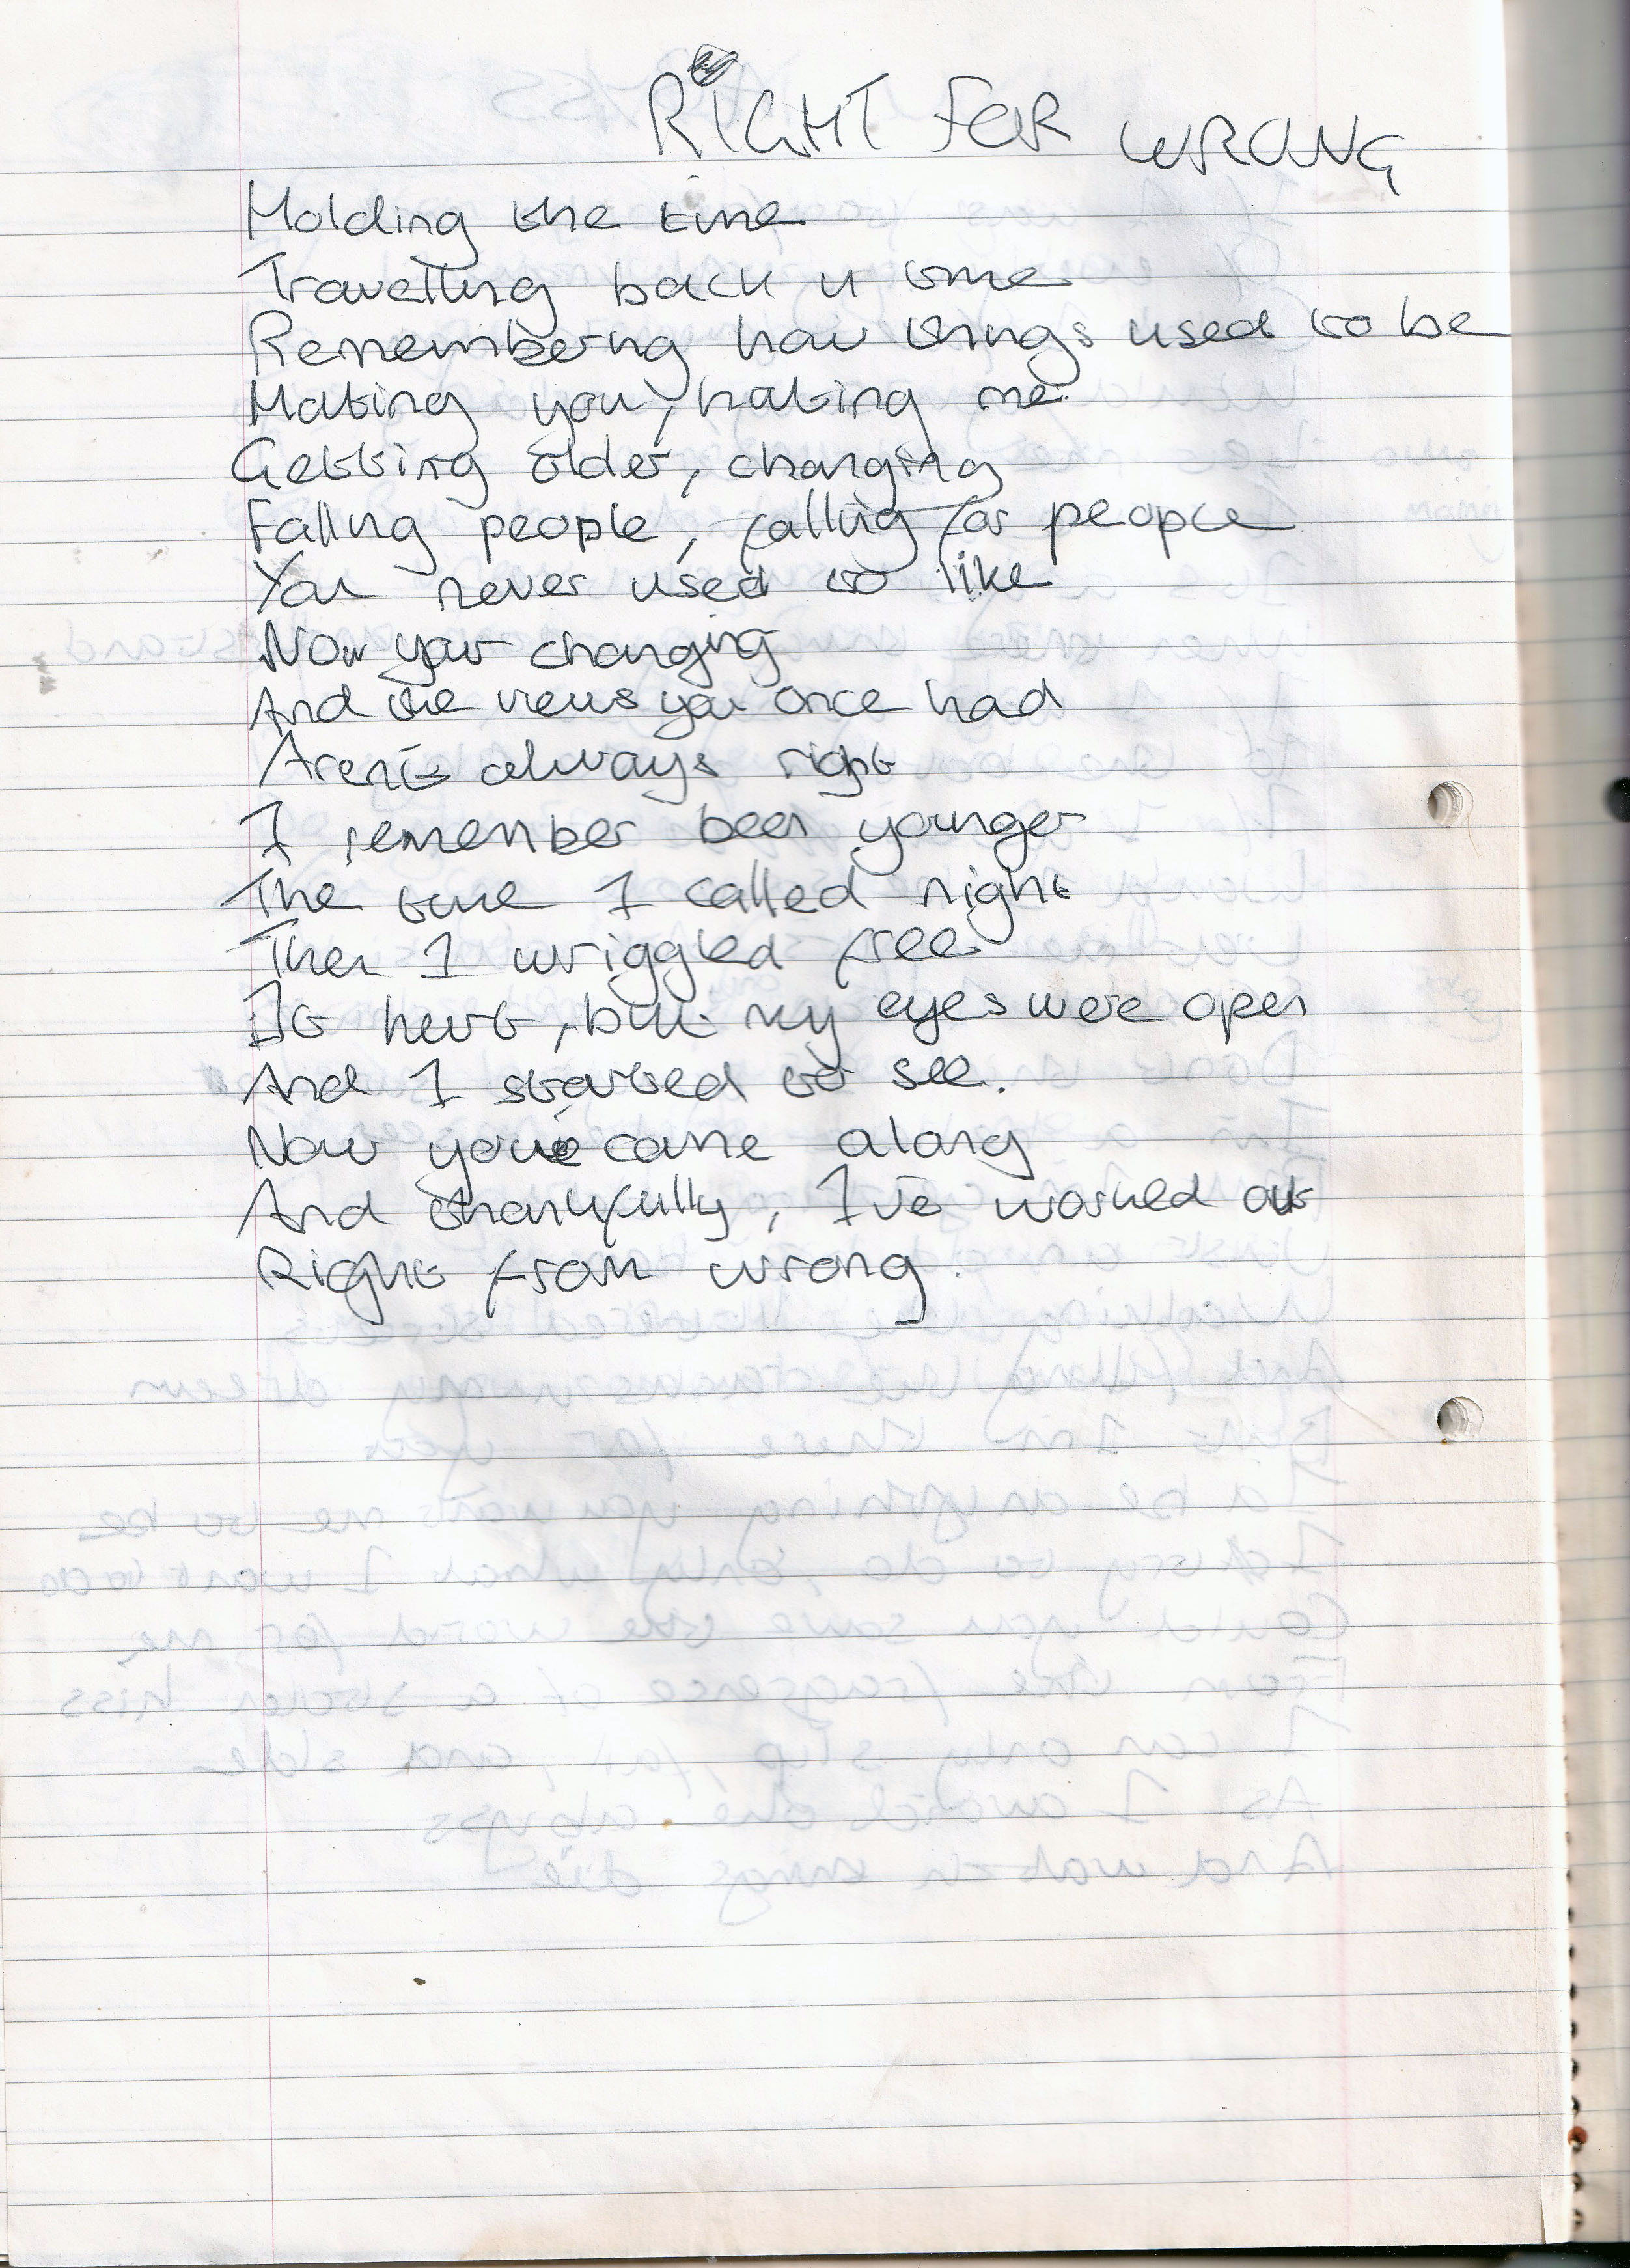 RIGHT FOR WRONG
Holding the time
Travelling back in time
Remembering how things used to be
Hating you, hating me
Getting older, changing
Falling people, falling for people
You never used to like
Now your changing
And the views you once had
Aren't always right
I remember been younger
The time I called night
Then I wriggled free
It hurt, but my eyes were open
And I started to see.
Now you've come along
And thankfully, I've worked out
Right from wrong.